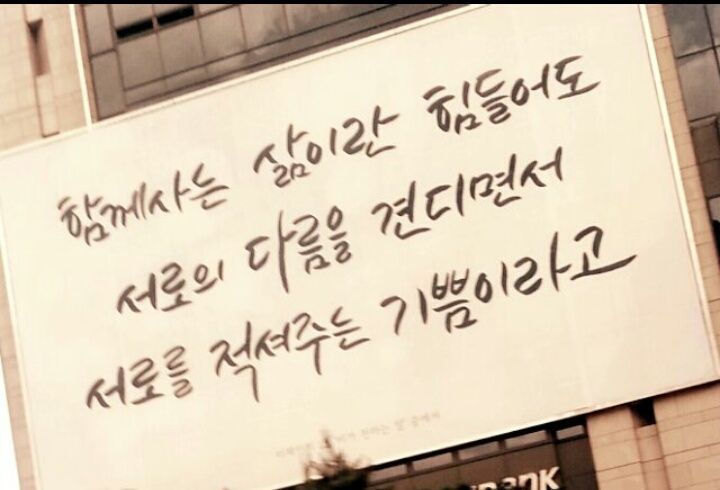 함께사는 삶이란 힘들어도
서로의 다름을 견디면서
서로를 적셔주는 기쁨이라고